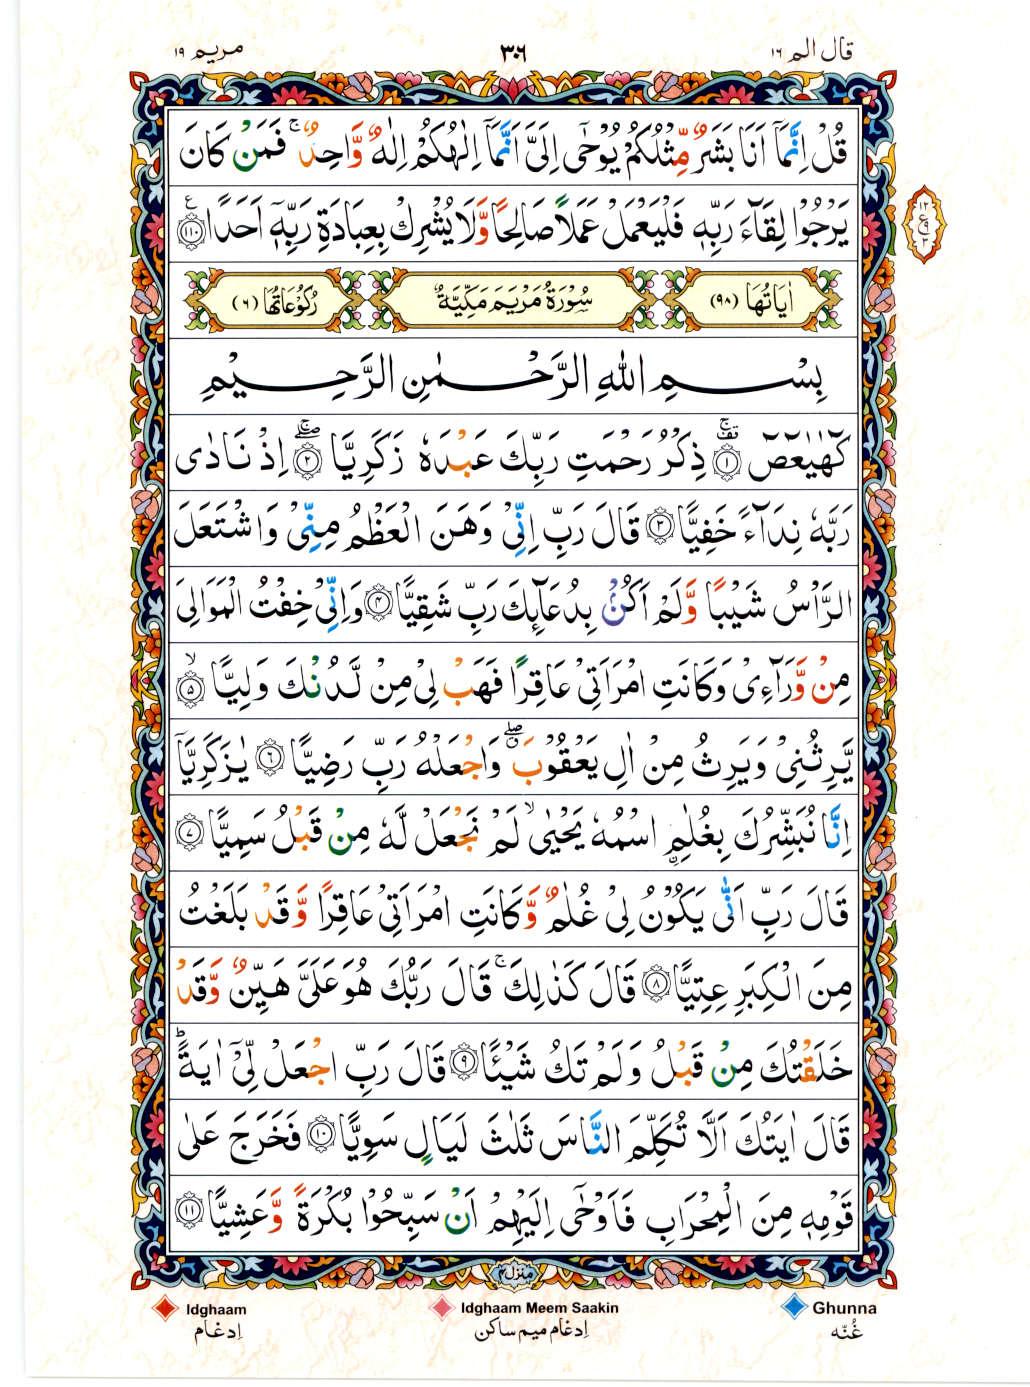 قال الم ١٦
٣٠٦
مريم ١٩
قُلْ اِنَّمَاۤ اَنَا بَشَرٌ مِّثْلُكُمْ يُوْحٰۤى اِلَىَّ اَنَّمَاۤ اِلٰهُكُمْ اِلٰهٌ وَّاحِدٌ ۚ فَمَنْ كَانَ
يَرْجُوْا لِقَآءَ رَبِّهٖ فَلْيَعْمَلْ عَمَلًا صَالِحًا وَّلَا يُشْرِكْ بِعِبَادَةِ رَبِّهٖۤ اَحَدًا ﴿١١٠﴾ ع
١٢
ع ٩
٣
اٰيَاتُهَا (٩٨)
سُوْرَةُ مَرْيَمَ مَكِّيَّةٌ
رُكُوْعَاتُهَا (٦)
بِسْمِ اللّٰهِ الرَّحْمٰنِ الرَّحِيْمِ
كٓهٰيٰعٓصٓ ﴿١﴾ ذِكْرُ رَحْمَتِ رَبِّكَ عَبْدَهٗ زَكَرِيَّا ﴿٢﴾ اِذْ نَادٰى
رَبَّهٗ نِدَآءً خَفِيًّا ﴿٣﴾ قَالَ رَبِّ اِنِّىْ وَهَنَ الْعَظْمُ مِنِّىْ وَاشْتَعَلَ
الرَّاْسُ شَيْبًا وَّلَمْ اَكُنْۢ بِدُعَآئِكَ رَبِّ شَقِيًّا ﴿٤﴾ وَاِنِّىْ خِفْتُ الْمَوَالِىَ
مِنْ وَّرَآءِىْ وَكَانَتِ امْرَاَتِىْ عَاقِرًا فَهَبْ لِىْ مِنْ لَّدُنْكَ وَلِيًّا ۙ﴿٥﴾
يَّرِثُنِىْ وَيَرِثُ مِنْ اٰلِ يَعْقُوْبَ ۖ وَاجْعَلْهُ رَبِّ رَضِيًّا ﴿٦﴾ يٰزَكَرِيَّاۤ
اِنَّا نُبَشِّرُكَ بِغُلٰمِ ۟اسْمُهٗ يَحْيٰى ۙ لَمْ نَجْعَلْ لَّهٗ مِنْ قَبْلُ سَمِيًّا ﴿٧﴾
قَالَ رَبِّ اَنّٰى يَكُوْنُ لِىْ غُلٰمٌ وَّكَانَتِ امْرَاَتِىْ عَاقِرًا وَّقَدْ بَلَغْتُ
مِنَ الْكِبَرِ عِتِيًّا ﴿٨﴾ قَالَ كَذٰلِكَ ۚ قَالَ رَبُّكَ هُوَ عَلَىَّ هَيِّنٌ وَّقَدْ
خَلَقْتُكَ مِنْ قَبْلُ وَلَمْ تَكُ شَيْـًٔا ﴿٩﴾ قَالَ رَبِّ اجْعَلْ لِّىْۤ اٰيَةً ؕ
قَالَ اٰيَتُكَ اَلَّا تُكَلِّمَ النَّاسَ ثَلٰثَ لَيَالٍ سَوِيًّا ﴿١٠﴾ فَخَرَجَ عَلٰى
قَوْمِهٖ مِنَ الْمِحْرَابِ فَاَوْحٰۤى اِلَيْهِمْ اَنْ سَبِّحُوْا بُكْرَةً وَّعَشِيًّا ﴿١١﴾
منزل ٤
Idghaam
Idghaam Meem Saakin
Ghunna
اِدغام
اِدغام ميم ساكن
غُنّه